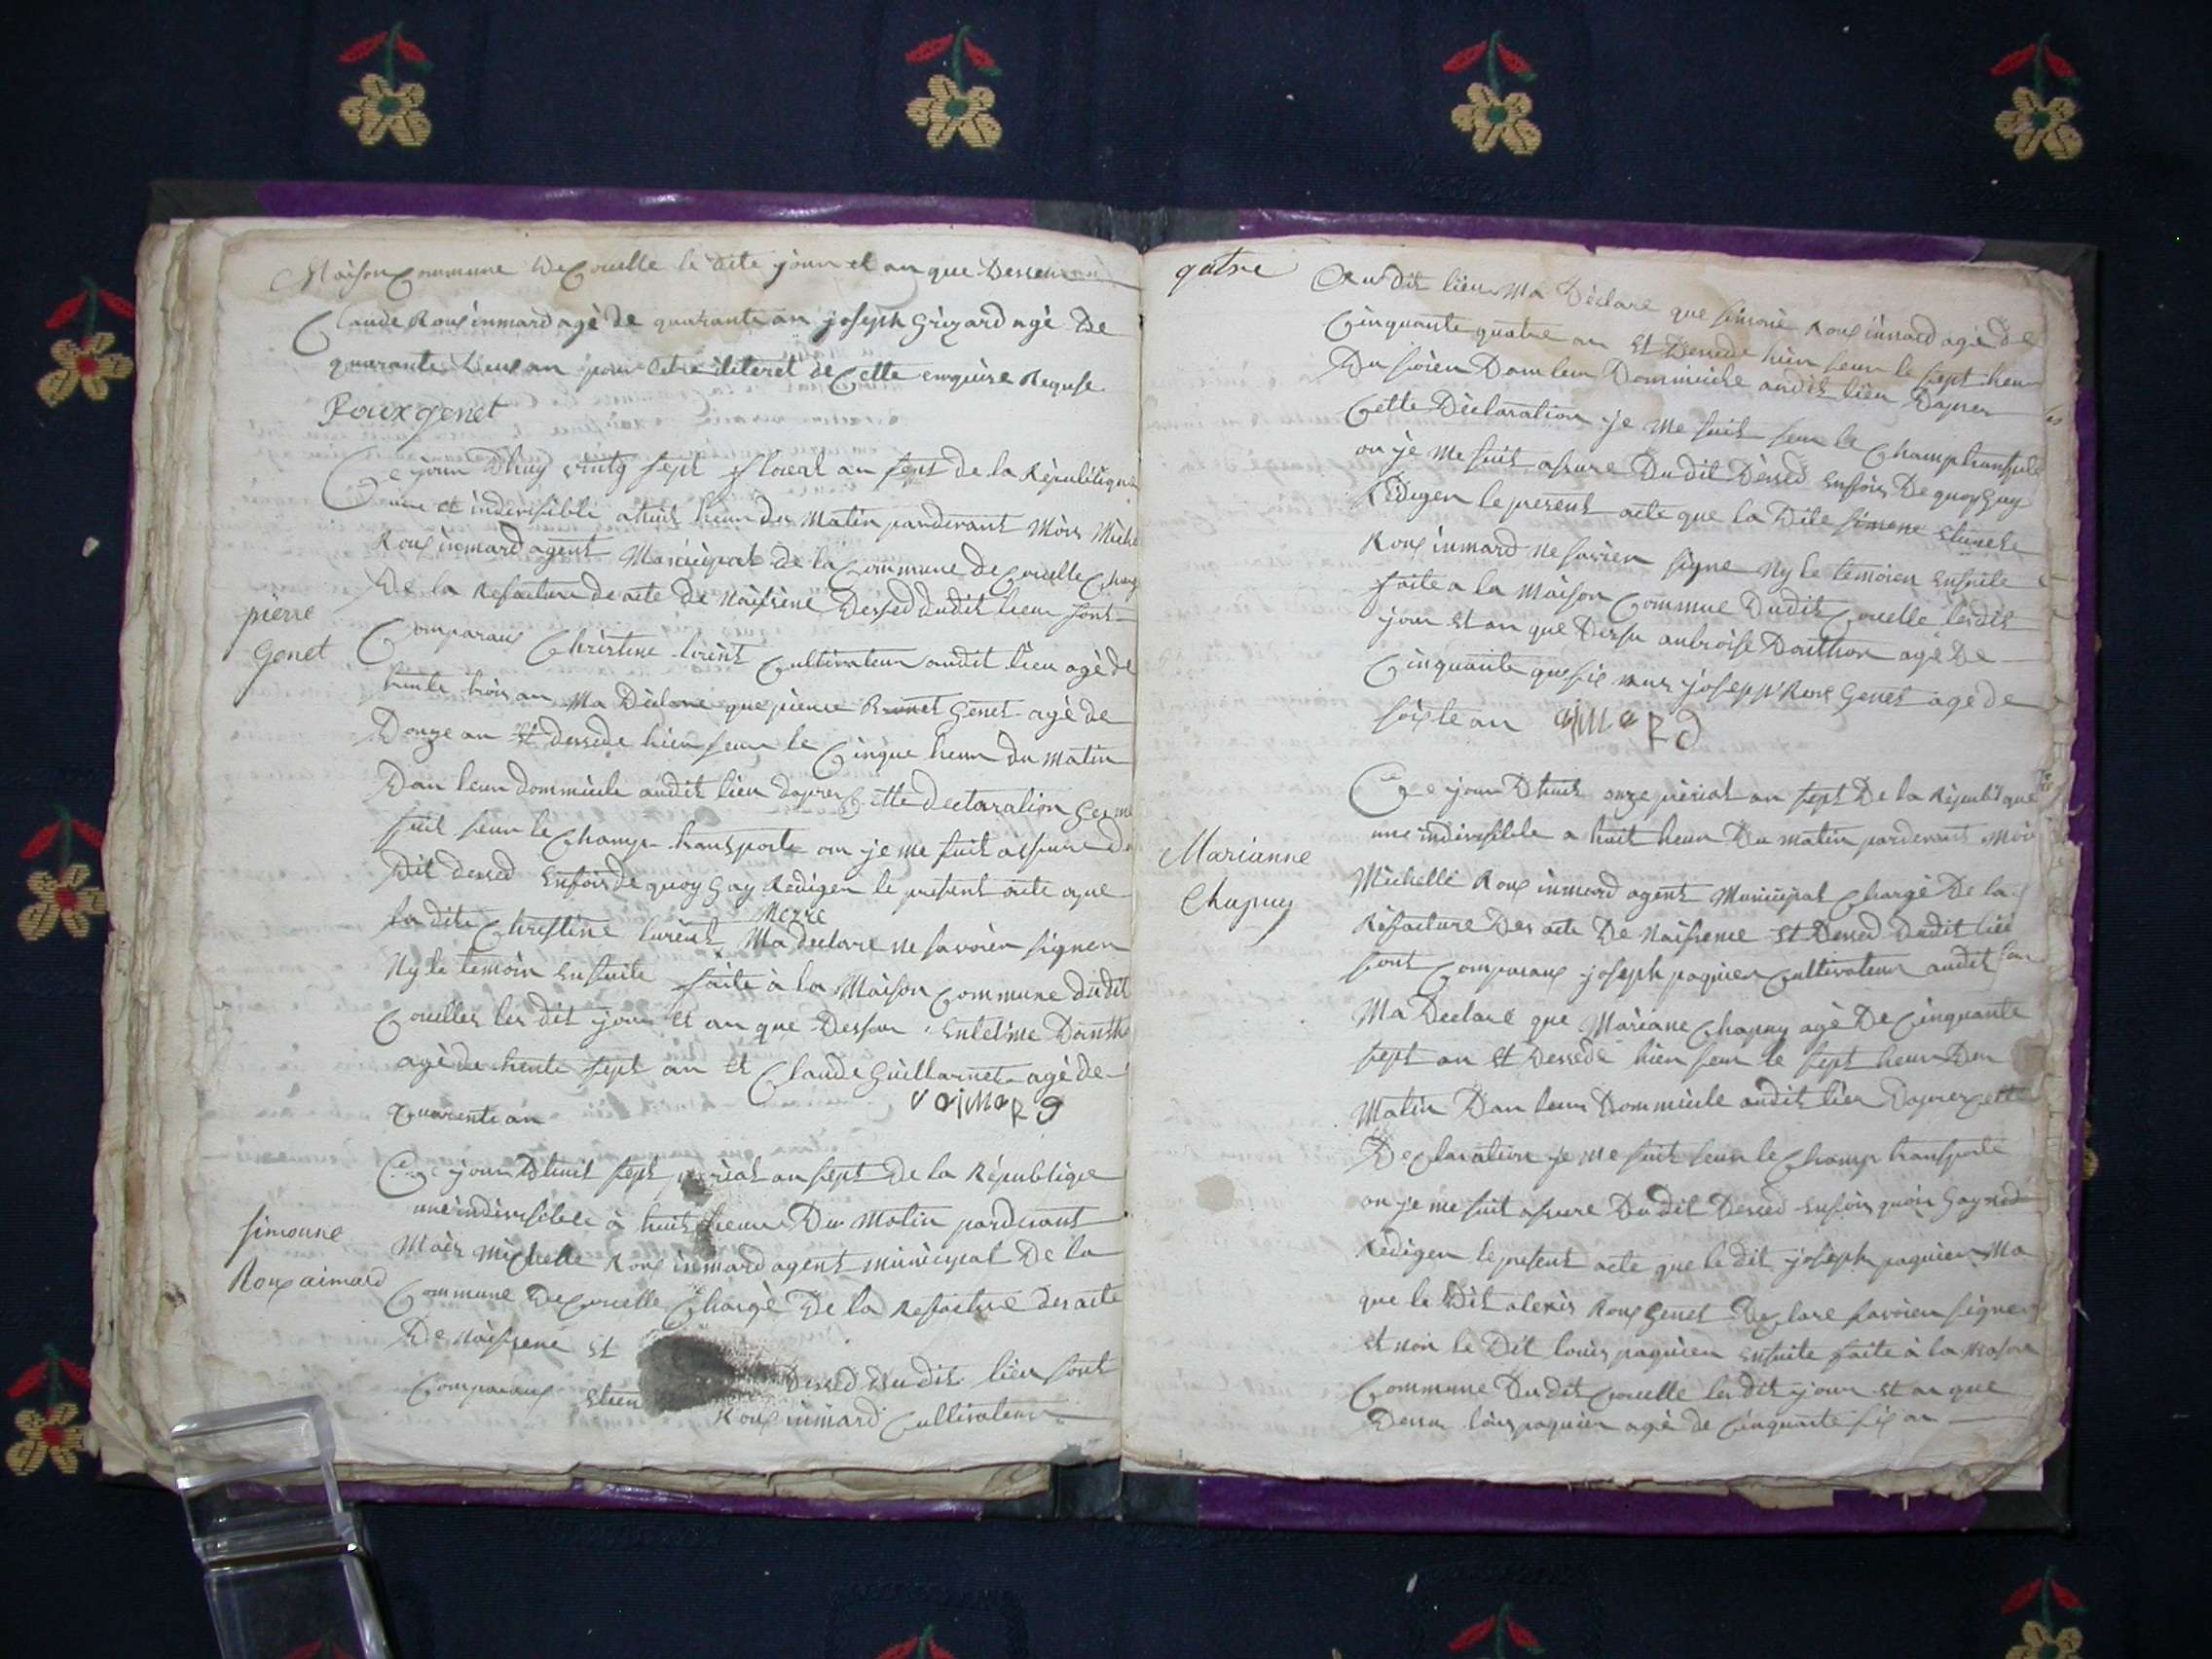 Maison Commune de Couelle le dite jour et an que Dessu
Claude Roux inmard agé de quarante an joseph Grizard agé De
quarante Deux an pour Cette
Rouxgenet
Ce jour Dhuy vintg sept floreal an sept de la Républiqu
une et indivisible a huit heur du Matin pardevant Mois Miche
Roux inmard agent Municipal de la Commune de Couelle Charg
De la Refacture de acte de Naissene Dessed dudit lieu sont
pierre
Genet
Comparaux Christine lorent Cultivateur audit lieu agé de
trente trois an Ma Déclare que pierre Genet agé de
Douze an Et dessede hier seur le Cinque heur du Matin
Dan leur dommicile audit lieu dapres Cette declaration Ge me
suit seur le Champ transporte ou je me suit assure Du
Dit dessed Enfois de quoy Gay Redigen le present acte que
Merre
la dite Christine lorent Ma declare ne savoien signen
Ny le temoin Ensuite faite à la Maison Commune dudit
Couelles les dit jour Et an que Dessu
agé de trente sept an Et Claude Guillarmet agé de
Quarente an
Ce jour Dhuit sept perial an sept de la République
une indivisible à huit heur Du Matin pardevant
simonne
Roux aimard
Mois Michelle Roux inmard agent municipal De la
Commune De Couelle Chargé De la Refacture des acte
De naissene Et
Dessed Dudit lieu sont
Comparaux Etien Roux inmard Cultivateur
qatre
Audit lieu Ma Déclare que simone Roux inmard agé De
Cinquante quatre an Et Dessede hier seur le sept heur
Du soien Dan leur Dommicile audit lieu Dapres
Cette Déclaration je Me suit seur le Champ transporte
ou je Me suit assure Dudit Dessed Enfois De quoy Gay
Rédigen le present acte que la Dite simone
Roux inmard ne savien signe Ny le temoien Ensuite
faite a la Maison Commune Dudit Couelle les dit
jour Et an que Dessu anbroise Dauthon agé De
Cinquante Roux Genet agé de
an aimard
Ce jour Dhuit onze périal an sept De la Républque
une indivisible a huit heur Du Matin pardevant Mois
Marianne
Chapuy
Michelle Roux inmard agent Municipal Chargé De la
Réfacture Des acte De Naissene Et Dessed Dudit lieu
sont Comparaux joseph paquien Cultivateur audit
Ma Declaré que Mariane Chapuy agé De Cinquante
sept an Et Dessede hier seur le sept heur Du
Matin Dan leur Dommicile audit lieu Dapres cette
Declaration je Me suit seur le Champ transporte
ou je me suit assure Du dit Dessed Enfois quois Gay
Rédigen le present acte que le dit joseph paquien Ma
que le Dit alexis Roux Genet Declare savoien signer
Et non le Dit louis paquien Ensuite faite à la Mason
Commune Du dit Couelle les dit jour Et an que
Dessu louis paquien agé de Cinquante six an